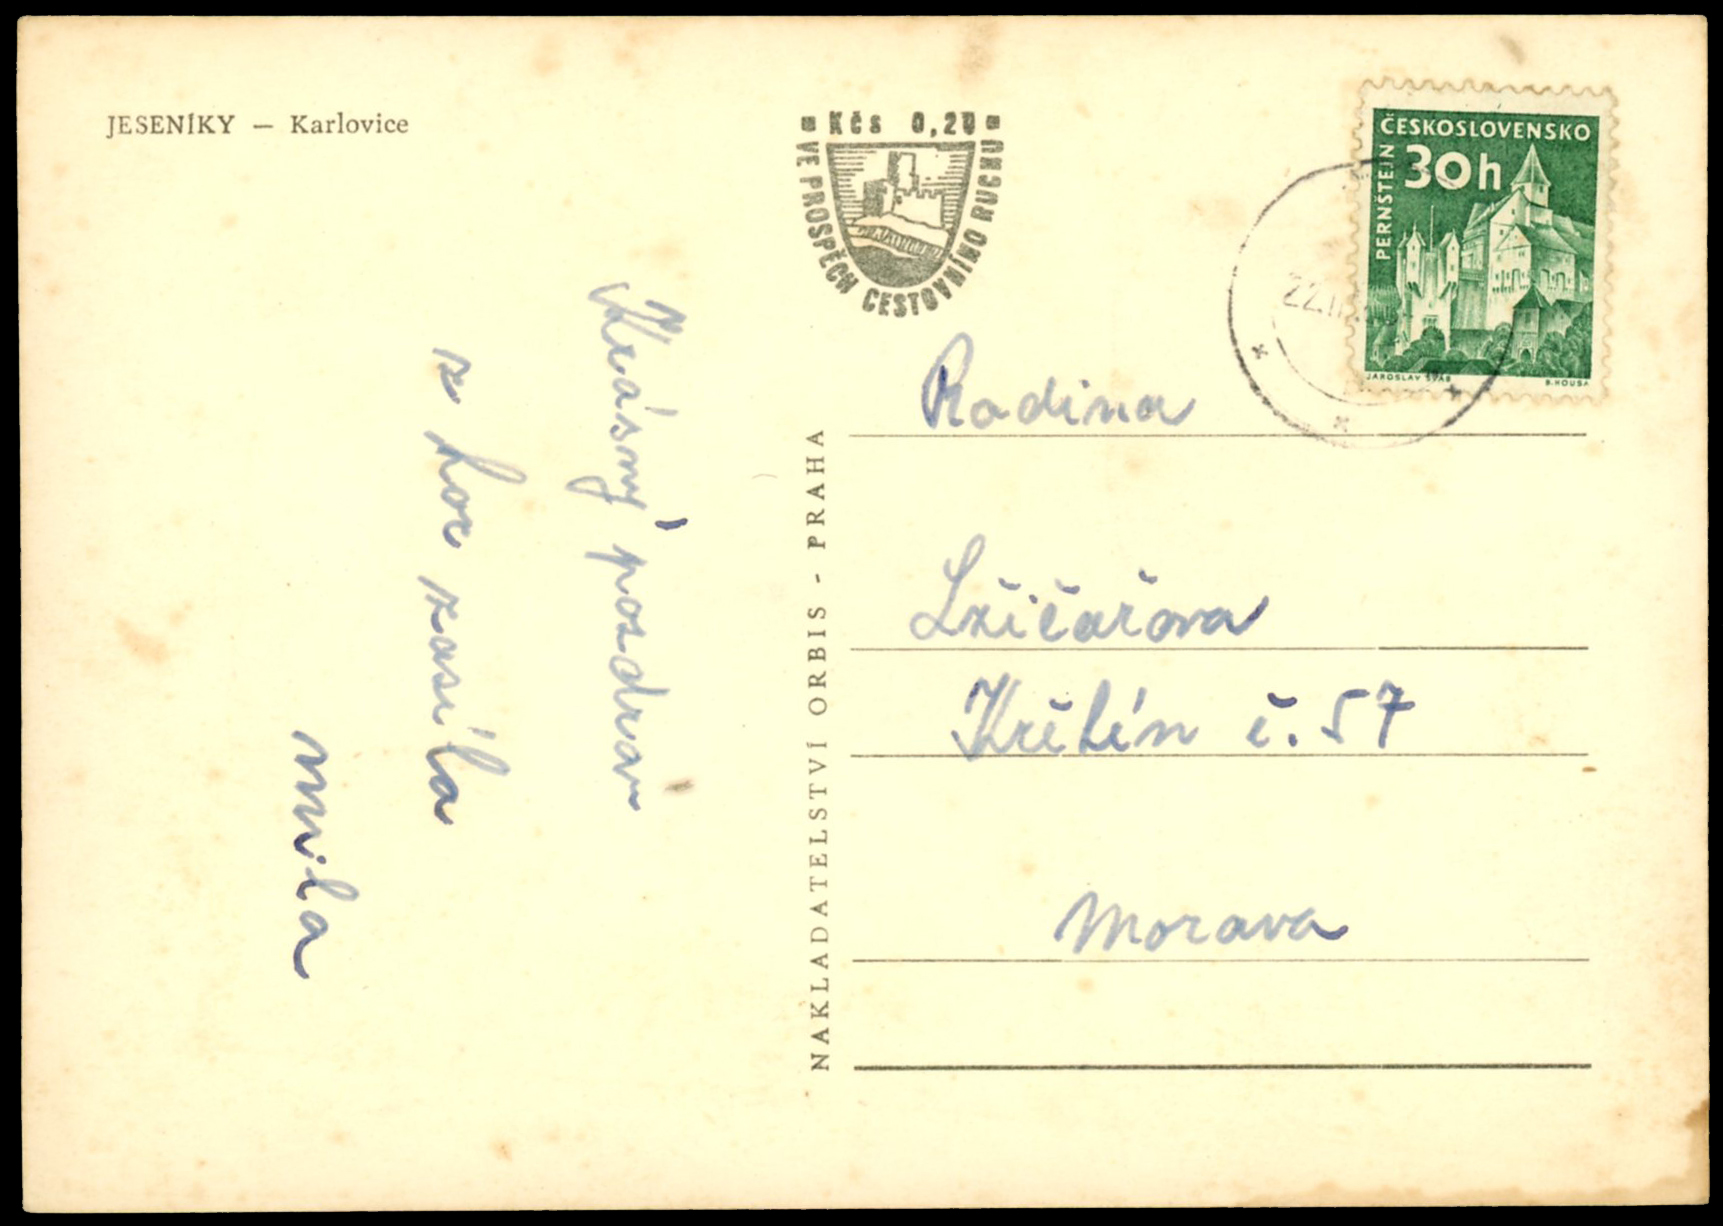 JESENÍKY — Karlovice
Kčs 0,20
VE PROSPĚCH CESTOVNÍHO RUCHU
ČESKOSLOVENSKO
30h
PERNŠTEJN
JAROSLAV ŠVÁB
B. HOUSA
22.
Krásný pozdrav
z hor zasíla
Mila
NAKLADATELSTVÍ ORBIS - PRAHA
Rodina
Lžičařova
Křetín č. 57
Morava